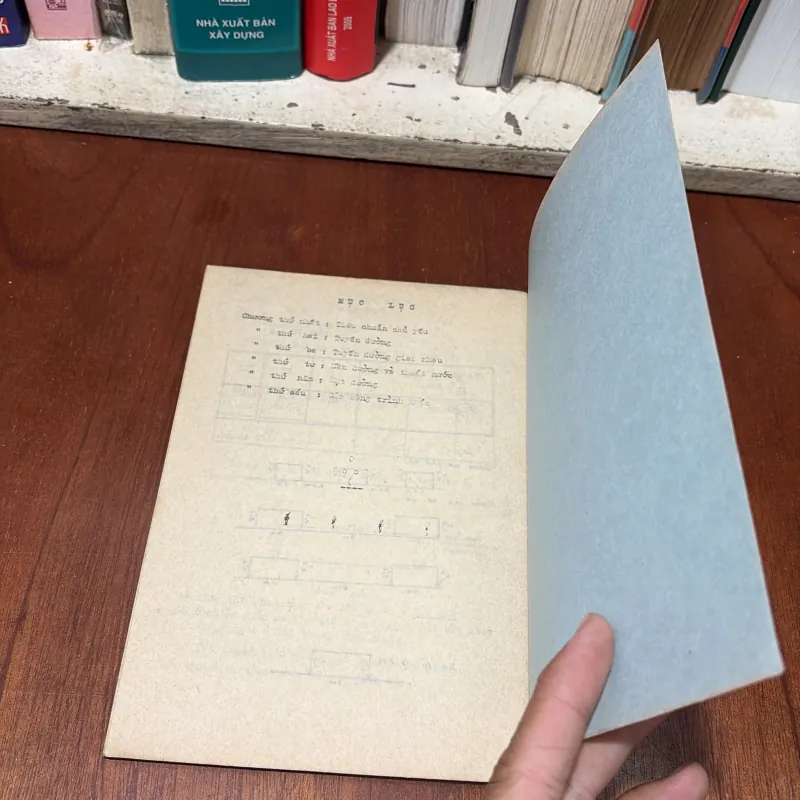 NHÀ XUẤT BẢN
XÂY DỰNG
NHÀ XUẤT BẢN LAO
2009
MỤC LỤC
Chương thứ nhất : Tiêu chuẩn chủ yếu
" thứ hai : Tuyến đường
" thứ ba : Tuyến đường giao nhau
" thứ tư : Nền đường và thoát nước
" thứ năm : Mặt đường
" thứ sáu : công trình